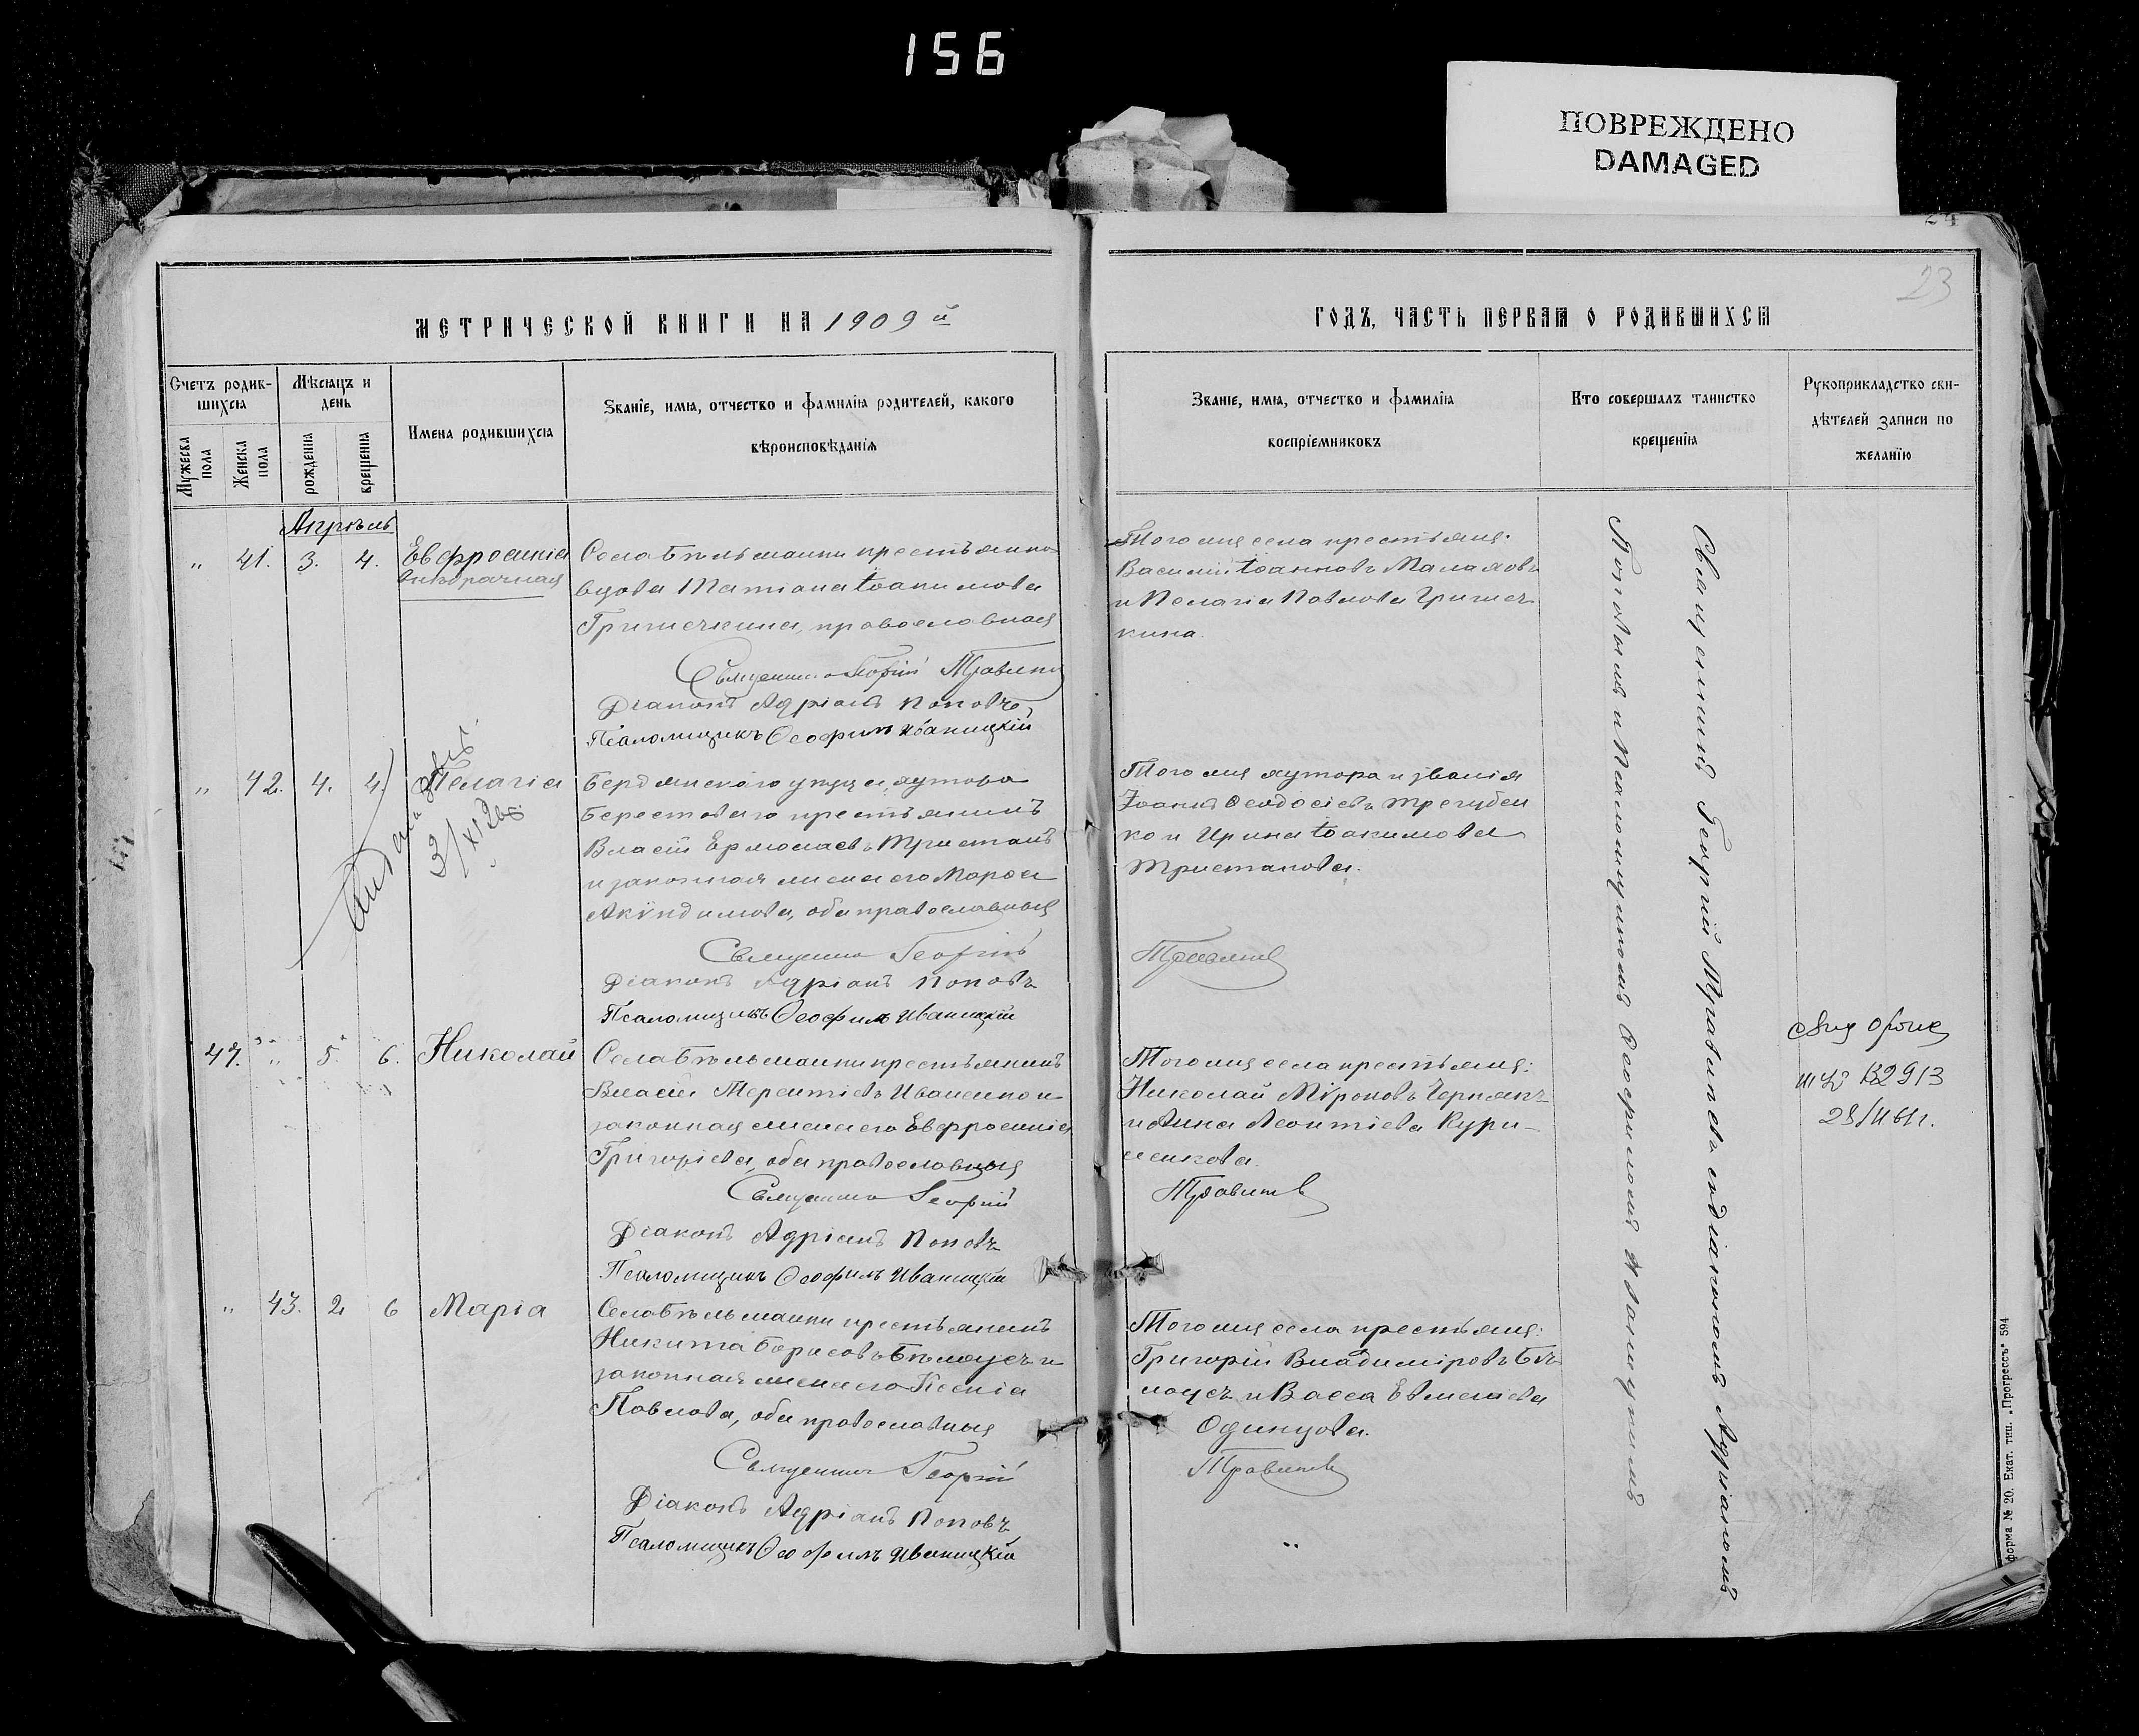 156
ПОВРЕЖДЕНО
DAMAGED
24
23
МЕТРИЧЕСКОЙ КНИГИ НА 1909 й
ГОДЪ, ЧАСТЬ ПЕРВАЯ О РОДИВШИХСЯ
Счетъ родив-
шихся
Мужеска
пола
Женска
пола
Мѣсяцъ и
день
рожденія
крещенія
Имена родившихся
Званіе, имя, отчество и фамилія родителей, какого
вѣроисповѣданія
Званіе, имя, отчество и фамилія
воспріемниковъ
Кто совершалъ таинство
крещенія
Рукоприкладство сви-
дѣтелей записи по
желанію
Апрѣль
" 41. 3. 4. Евфросинія
внѣбрачная
Села Бѣльманки крестьянка
вдова Татіана Іоакимова
Гришечкина, православная
Священникъ Георгій
Діаконъ Адріанъ Поповъ
Псаломщикъ Ѳеофилъ Иваницкій
Того же села крестьяне:
Василій Іоанновъ
и Пелагія Павлова Гришеч-
кина.
" 42. 4. 4. Пелагія
Бердянскаго уѣзда, хутора
Берестоваго крестьянинъ
Власій Ермолаевъ Тристанъ
и законная жена его Марѳа
Акиндинова, оба православные
Священникъ Георгій
Діаконъ Адріанъ Поповъ
Псаломщикъ Ѳеофилъ Иваницкій
Того же хутора и званія
Іоаннъ Ѳеодосіевъ Трегубен-
ко и Ирина Іоакимова
Тристанова.
47. " 5. 6. Николай
Села Бѣльманки крестьянинъ
Власій Терентіевъ Иваненко и
законная жена его Евфросинія
Григоріева, оба православные
Священникъ Георгій
Діаконъ Адріанъ Поповъ
Псаломщикъ Ѳеофилъ Иваницкій
Того же села крестьяне:
Николай Мѵроновъ Чернякъ
и Анна Леонтіева Кури-
ленкова.
" 43. 2 6 Марія
Села Бѣльманки крестьянинъ
Никита Борисовъ Бѣлоусъ и
законная жена его Ксенія
Павлова, оба православные
Священникъ Георгій
Діаконъ Адріанъ Поповъ
Псаломщикъ Ѳеофилъ Иваницкій
Того же села крестьяне:
Григорій Владиміровъ Бѣ-
лоусъ и Васса Евменіева
Одинцова.
Священникъ Георгій съ діакономъ Адріаномъ
Поповымъ и Псаломщикомъ Ѳеофиломъ Иваницкимъ
форма № 20. Екат. тип. „Прогрессъ" 594